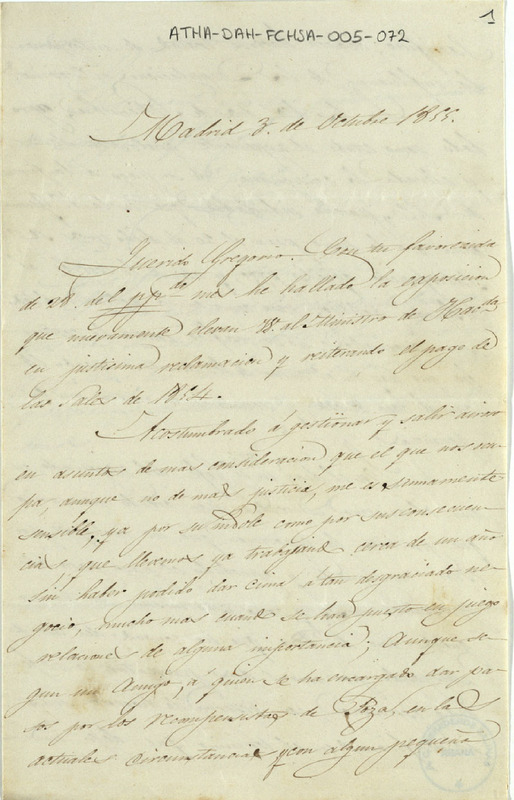 1
ATHA-DAH-FCHSA-005-072
Madrid 3. de Octubre 1855.
Querido Gregorio. Con tu favorecida
de 28. del me he hallado la exposicion
que nuevamente elevan Vs. al Ministro de Hac.da
en justisima reclamacion y reiterando el pago de
las Sales de 1854.
Acostumbrado á gestionar y salir airoso
en asuntos de mas consideracion que el que nos ocu-
pa, aunque no de mas justicia, me es sumamente
sensible, ya por su indole como por sus consecuen-
cias, que llevemos ya trabajando cerca de un año
sin haber podido dar cima á tan desgraciado ne-
gocio, mucho mas cuando se han puesto en juego
relaciones de alguna importancia; Aunque se-
gun un Amigo, á quien se ha encargado dar pa-
sos por los recompensistas de Poza, en las
actuales circunstancias y con algun pequeño